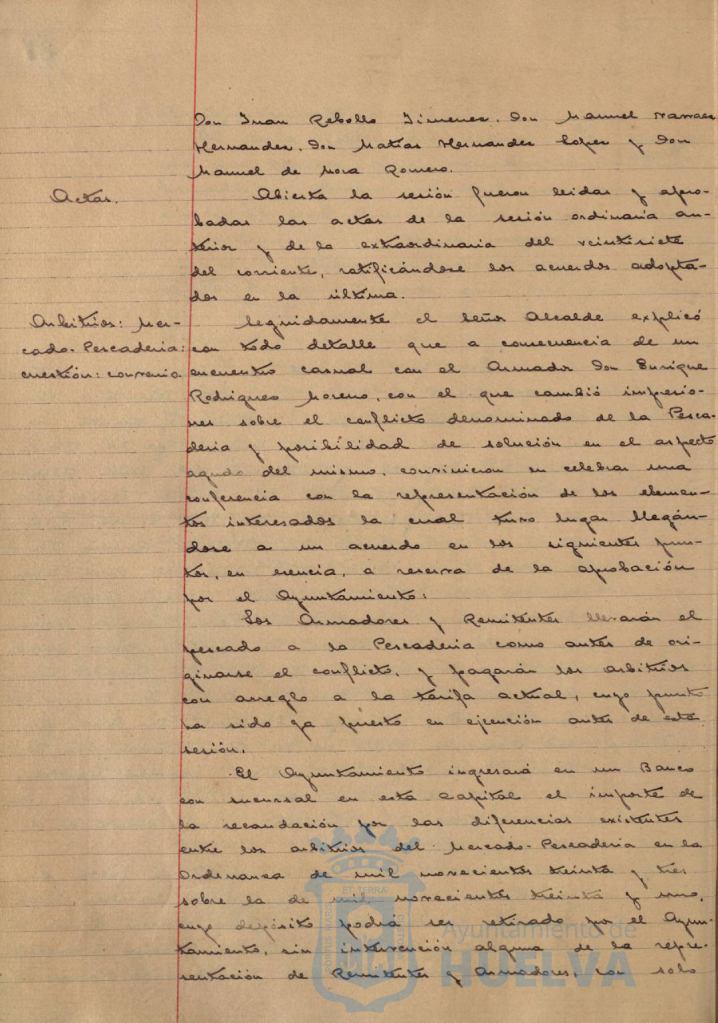 Don Juan Rebollo Jimenez. Don Manuel Narraez
Hernandez. Don Matías Hernandez Lopez y Don
Manuel de Mora Romero.
Actas.
Abierta la sesión fueron leidas y apro-
badas las actas de la sesión ordinaria an-
terior y de la extraordinaria del veintisiete
del corriente, ratificándose los acuerdos adopta-
dos en la última.
Arbitrios: Mer-
cado-Pescaderia:
cuestión: convenio
Seguidamente el Señor Alcalde explicó
con todo detalle que a consecuencia de un
encuentro casual con el Armador Don Enrique
Rodriguez Moreno, con el que cambió impresio-
nes sobre el conflicto denominado de la Pesca-
deria y posibilidad de solución en el aspecto
agudo del mismo, convinieron en celebrar una
conferencia con la representación de los elemen-
tos interesados la cual tuvo lugar llegán-
dose a un acuerdo en los siguientes pun-
tos, en esencia, a reserva de la aprobación
por el Ayuntamiento:
Los Armadores y Remitentes llevarán el
pescado a la Pescaderia como antes de ori-
ginarse el conflicto, y pagarán los arbitrios
con arreglo a la tarifa actual, cuyo punto
ha sido ya puesto en ejecución antes de esta
sesión.
El Ayuntamiento ingresará en un Banco
con sucursal en esta Capital el importe de
la recaudación por las diferencias existentes
entre los arbitrios del Mercado-Pescaderia en la
Ordenanza de mil novecientos treinta y tres
sobre la de mil novecientos treinta y uno,
cuyo depósito podrá ser retirado por el Ayun-
tamiento, sin intervención alguna de la repre-
sentación de Remitentes y Armadores, con solo
Ayuntamiento de
HUELVA